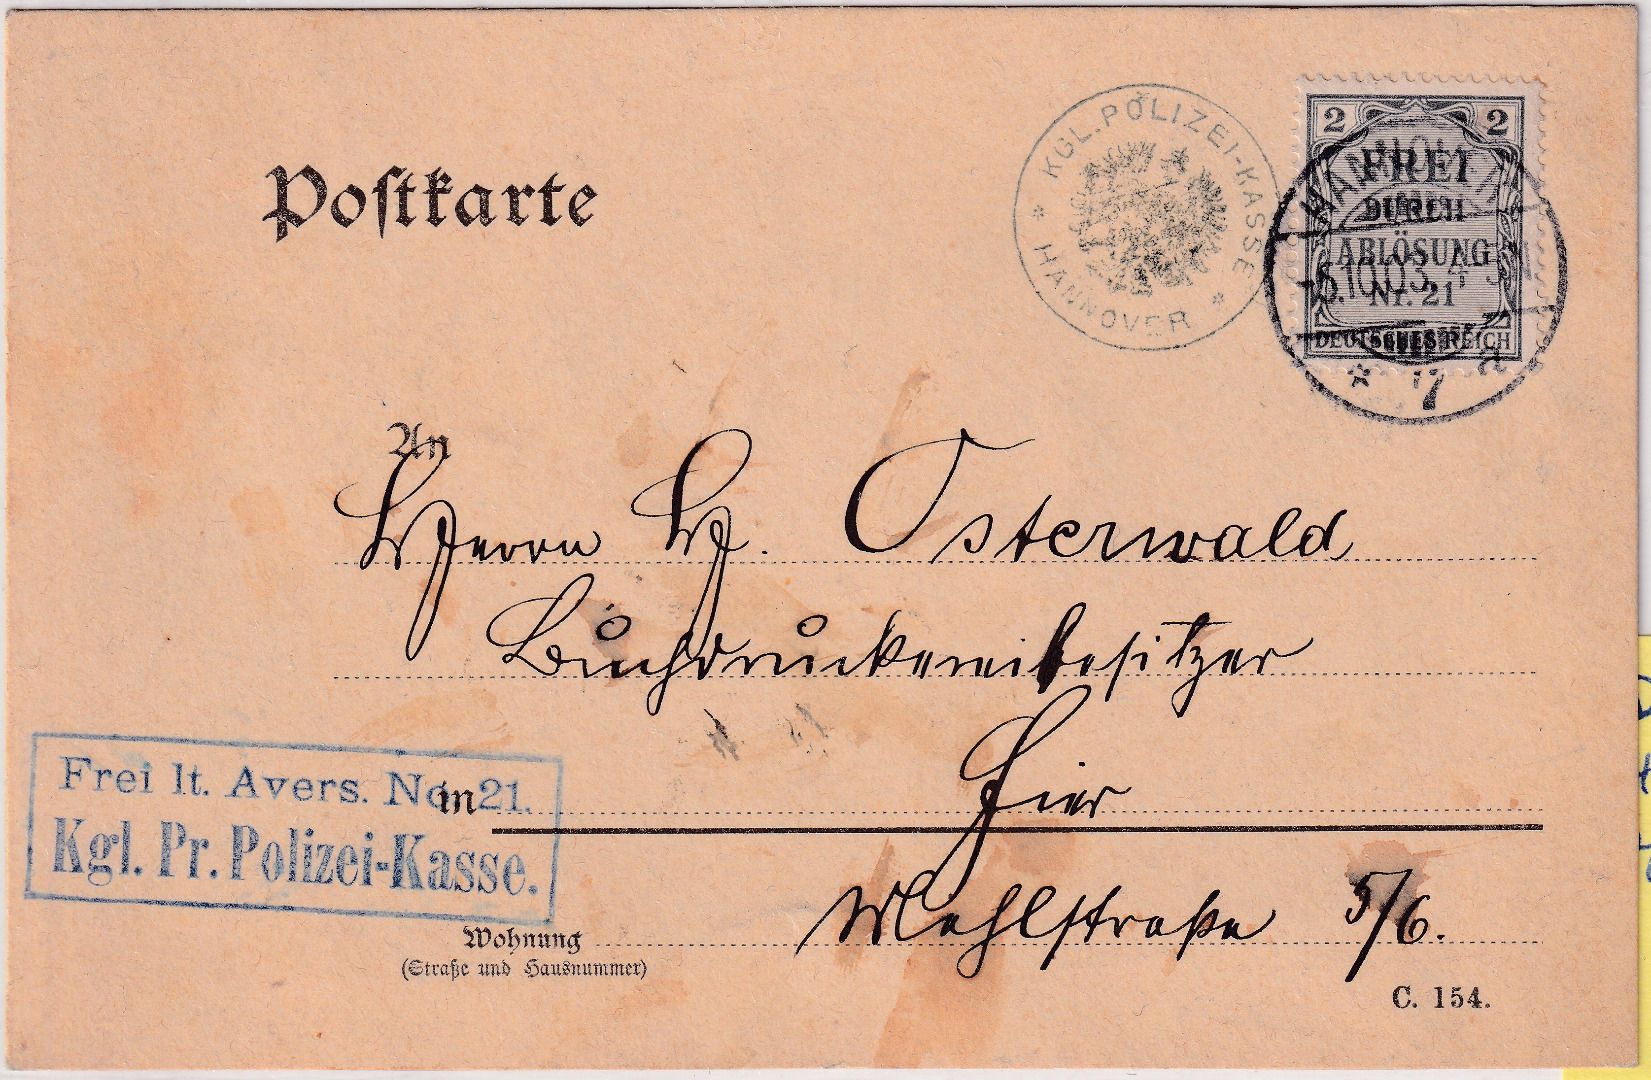 Postkarte
KGL. POLIZEI-KASSE
* HANNOVER *
2 2
FREI
DURCH
ABLÖSUNG
Nr. 21
DEUTSCHES REICH
HANNOVER
5.10.03. 4-5
* 7 a
An
Herrn H. Osterwald
Buchdruckereibesitzer
in Hier
Frei lt. Avers. No. 21.
Kgl. Pr. Polizei-Kasse.
Wohnung Mehlstraße 5/6.
(Straße und Hausnummer)
C. 154.